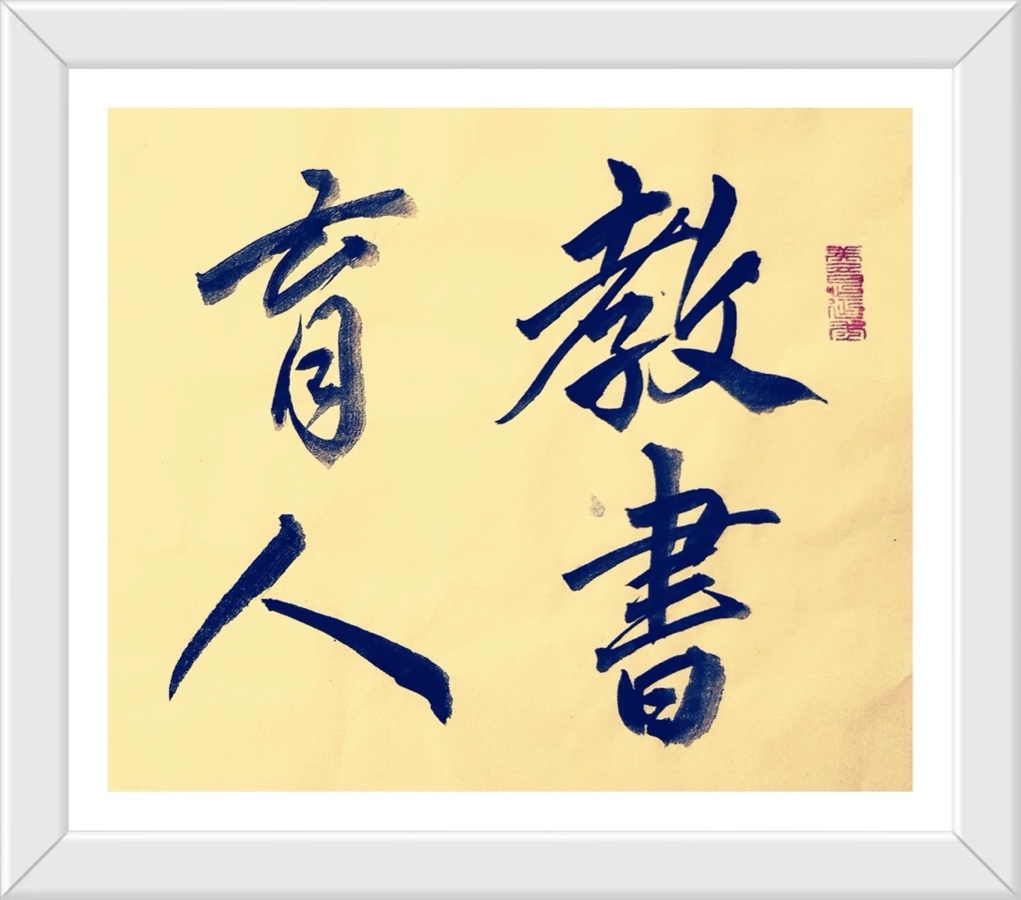 教書
育人